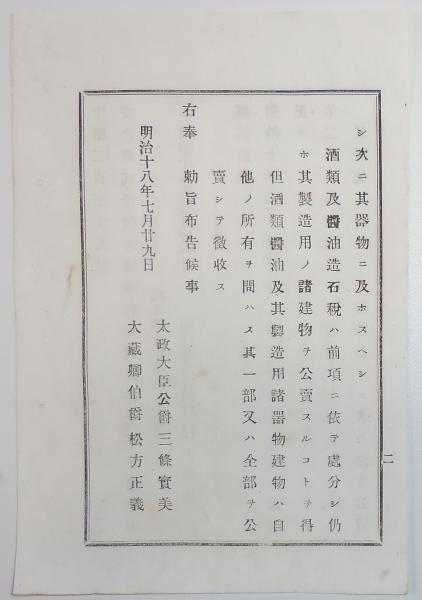 シ次ニ其器物ニ及ホスヘシ
酒類及醬油造石稅ハ前項ニ依テ處分シ仍
ホ其製造用ノ諸建物ヲ公賣スルコトヲ得
但酒類醬油及其製造用諸器物建物ハ自
他ノ所有ヲ問ハス其一部又ハ全部ヲ公
賣シテ徵收ス
右奉　勅旨布告候事
明治十八年七月廿九日
太政大臣公爵三條實美
大藏卿伯爵松方正義
二